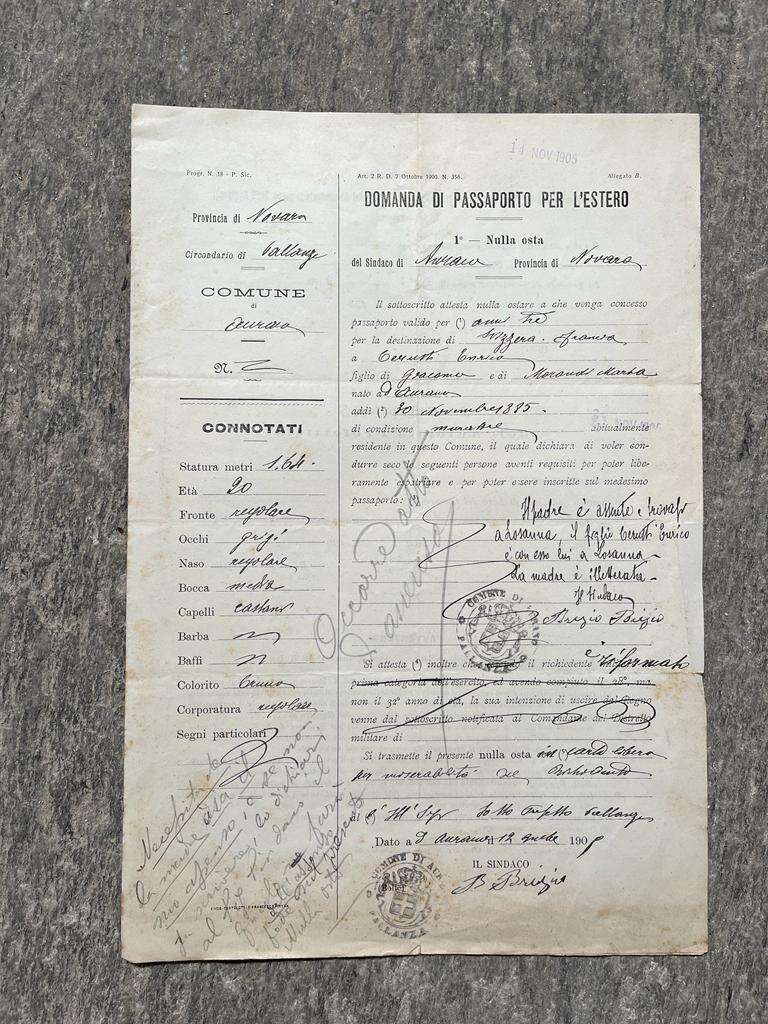 Progr. N. 18 - P. Sic.
Provincia di Novara
Circondario di Pallanza
COMUNE
di
Aurano
N. 2
CONNOTATI
Statura metri 1.64.
Età 20
Fronte regolare
Occhi grigi
Naso regolare
Bocca media
Capelli castani
Barba
Baffi
Colorito bruno
Corporatura regolare
Segni particolari
la madre dia il
suo assenso, o se non
sa scrivere lo dichiari
14 NOV 1905
Art. 2 R. D. 7 Ottobre 1900. N. 356.
Allegato B.
DOMANDA DI PASSAPORTO PER L'ESTERO
1º — Nulla osta
del Sindaco di Aurano Provincia di Novara
Il sottoscritto attesta nulla ostare a che venga concesso
passaporto valido per (¹) anni tre
per la destinazione di Svizzera - Francia
a Cerutti Enrico
figlio di Giacomo e di Morandi Marta
nato ad Aurano
addì (²) 30 Novembre 1885.
di condizione muratore abitualmente
residente in questo Comune, il quale dichiara di voler con-
durre seco le seguenti persone aventi requisiti per poter libe-
ramente espatriare e per poter essere inscritte sul medesimo
passaporto:
Occorre atto
d'assenso
Il padre è assente e trovasi
a Losanna, il figlio Cerutti Enrico
è con esso lui a Losanna -
La madre è illetterata -
Il Sindaco
Brizio Brizio
COMUNE DI AURANO
PALLANZA
Si attesta (³) inoltre che il richiedente è riformato
prima categoria dell'esercito, ed avendo compiuto il 28º, ma
non il 32º anno di età, la sua intenzione di uscire dal Regno
venne dal sottoscritto notificata al Comandante del Distretto
militare di
Si trasmette il presente nulla osta in carta libera
per miserabilità del
all' Ill Sigr Sotto Prefetto Pallanza
Dato a d Aurano 12 9mbre 190
IL SINDACO
B Brizio
(Bollo)
COMUNE DI AURANO
PALLANZA